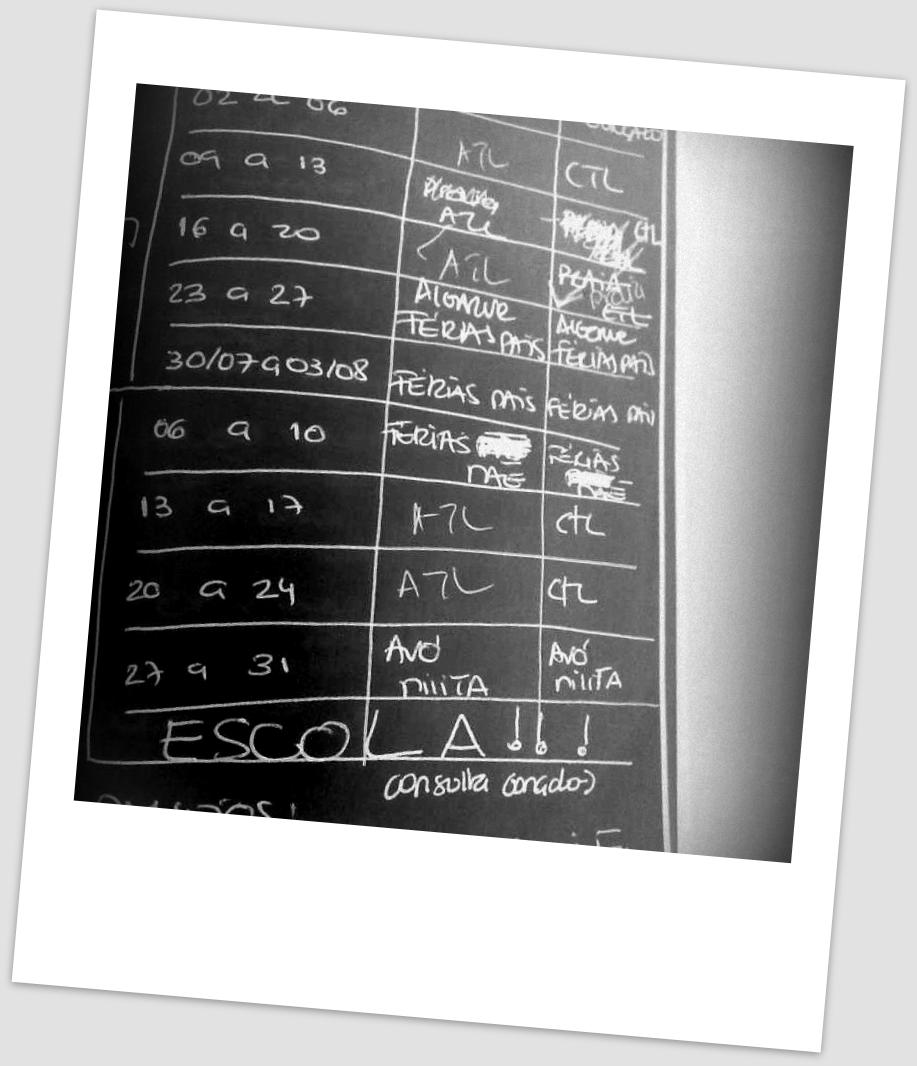 02 a 06
09 a 13 ATL CTL
ATL CTL
16 a 20 ATL PRAIA
23 a 27 ALGARVE CTL
FÉRIAS PAIS ALGARVE
FÉRIAS PAIS
30/07 a 03/08 FÉRIAS PAIS FÉRIAS PAIS
06 a 10 FÉRIAS FÉRIAS
MÃE MÃE
13 a 17 ATL CTL
20 a 24 ATL CTL
27 a 31 AVÓ AVÓ
MILITA MILITA
ESCOLA!!!